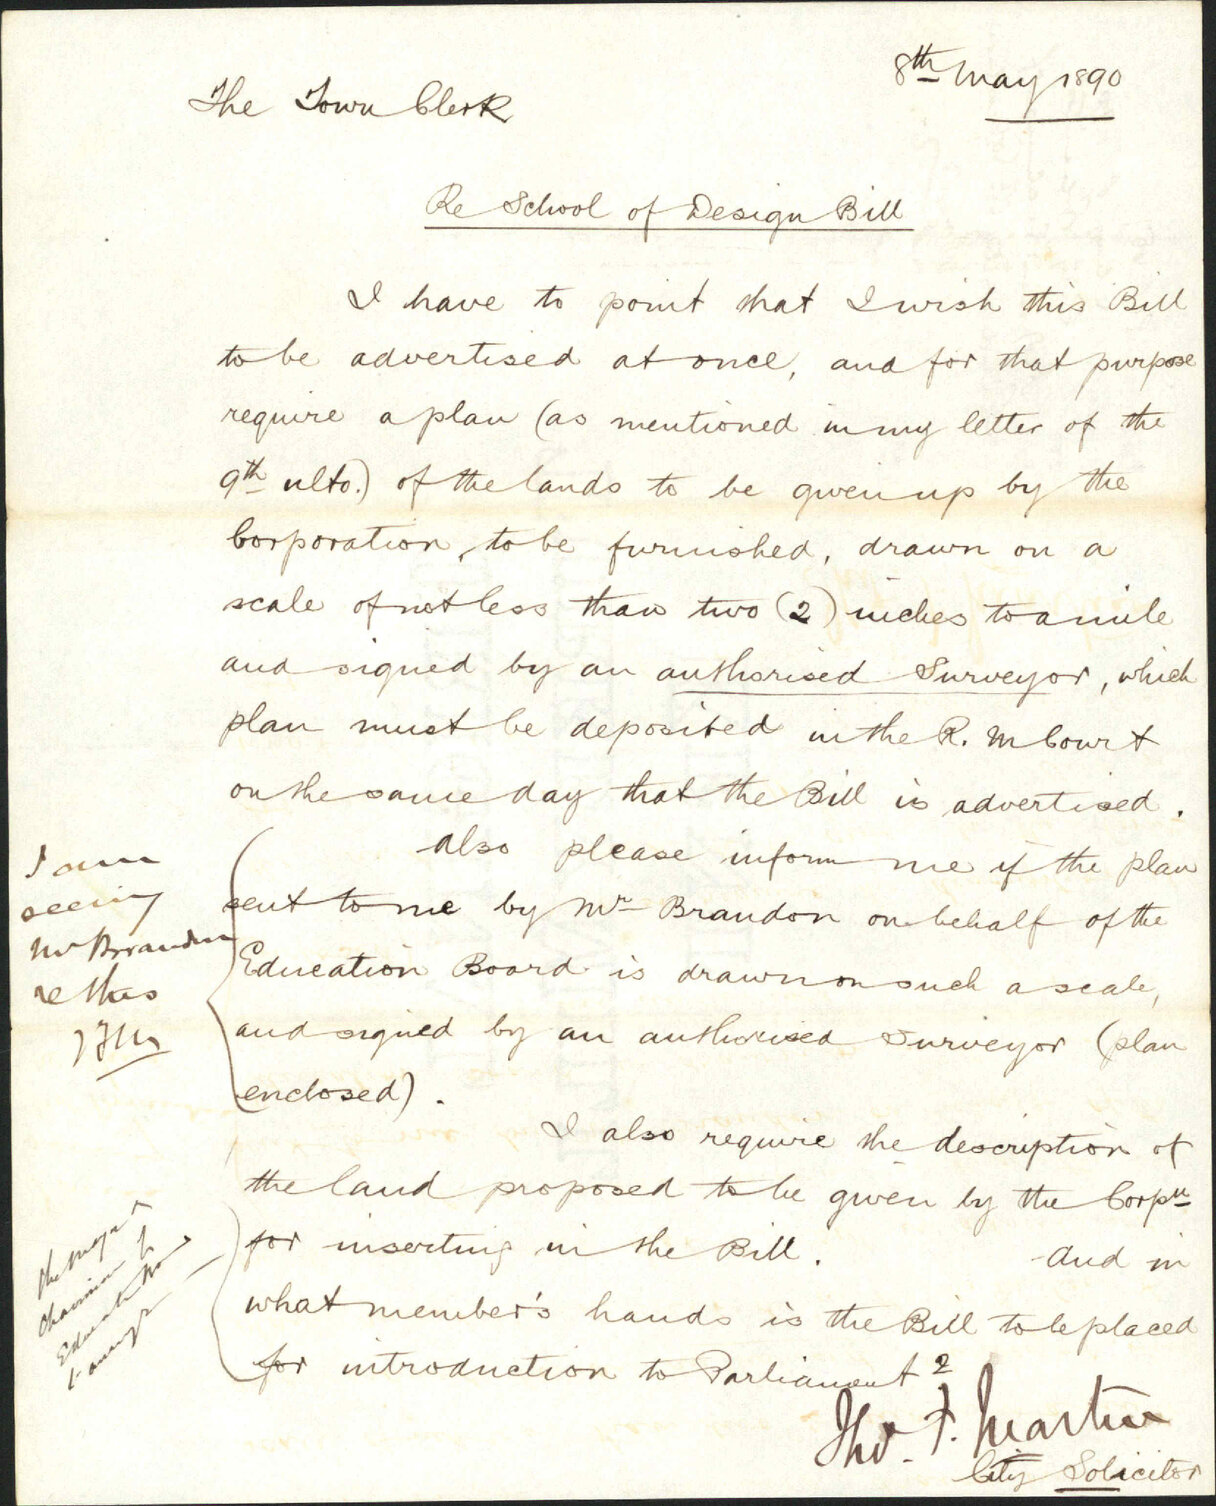 8th May 1890
The Town Clerk
Re School of Design Bill
I have to point that I wish this Bill
to be advertised at once, and for that purpose
require a plan (as mentioned in my letter of the
9th ulto.) of the lands to be given up by the
Corporation, to be furnished, drawn on a
scale of not less than two (2) inches to a mile
and signed by an authorised Surveyor, which
plan must be deposited in the R. M Court
on the same day that the Bill is advertised.
Also please inform me if the plan
sent to me by Mr Brandon on behalf of the
Education Board is drawn on such a scale,
and signed by an authorised Surveyor (plan
enclosed).
I am
seeing
Mr Brandon
re this
I also require the description of
the land proposed to be given by the Corpn
for inserting in the Bill. And in
what member's hands is the Bill to be placed
for introduction to Parliament?
The Mayor &
Chairman of
Education Board
to arrange
Thos. F. Martin
City Solicitor